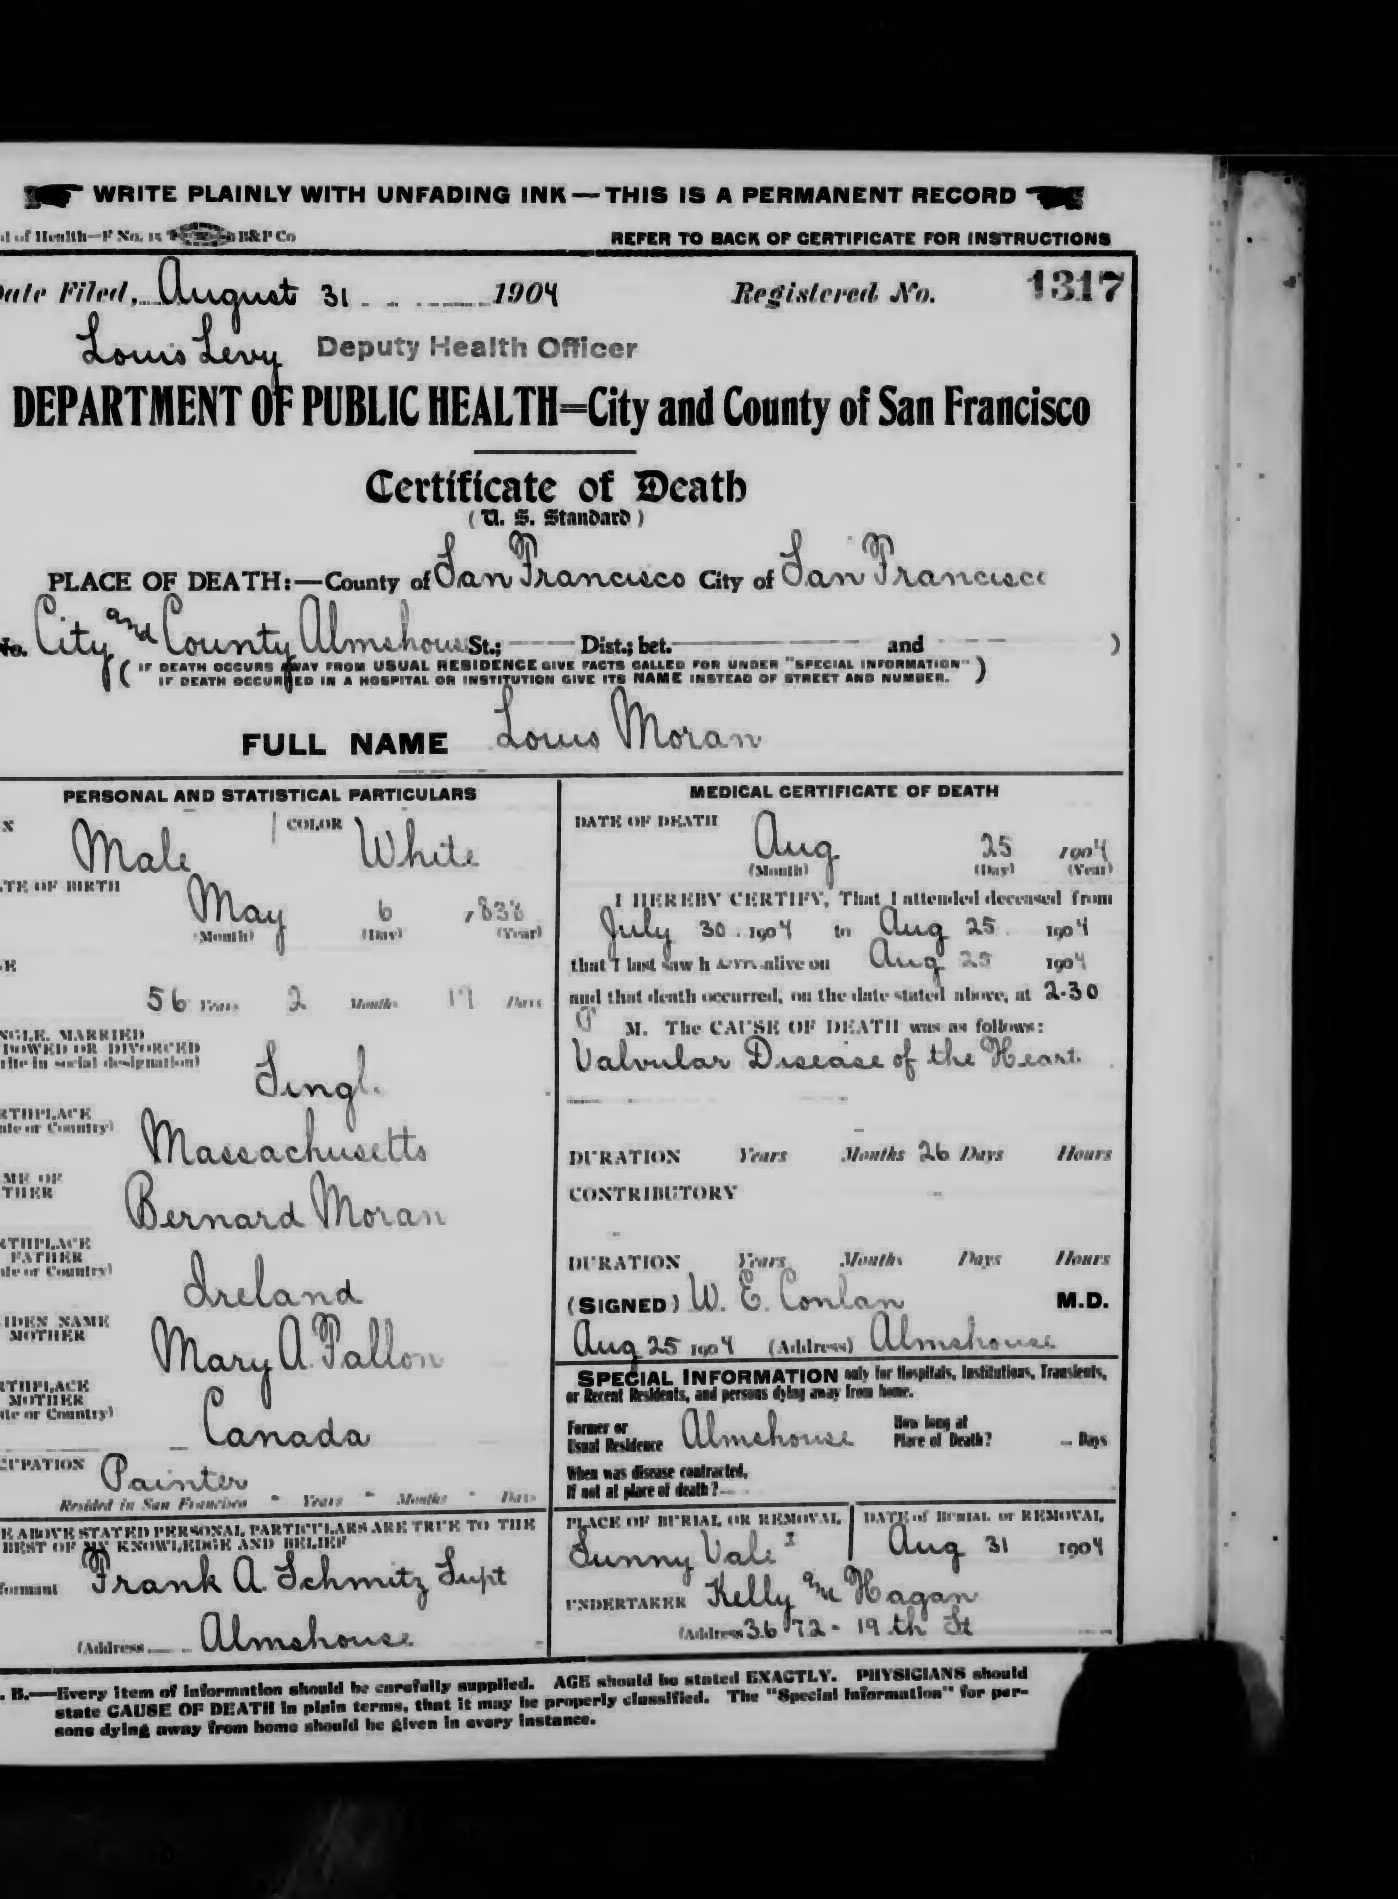 WRITE PLAINLY WITH UNFADING INK—THIS IS A PERMANENT RECORD
d of Health—F No. 15 B&P Co
REFER TO BACK OF CERTIFICATE FOR INSTRUCTIONS
Date Filed, August 31 1904 Registered No. 1317
Louis Levy Deputy Health Officer
DEPARTMENT OF PUBLIC HEALTH=City and County of San Francisco
Certificate of Death
(U. S. Standard)
PLACE OF DEATH:—County of San Francisco City of San Francisco
No. City and County Almshouse St.; Dist.; bet. and )
(IF DEATH OCCURS AWAY FROM USUAL RESIDENCE GIVE FACTS CALLED FOR UNDER "SPECIAL INFORMATION"
IF DEATH OCCURRED IN A HOSPITAL OR INSTITUTION GIVE ITS NAME INSTEAD OF STREET AND NUMBER.)
FULL NAME Louis Moran
PERSONAL AND STATISTICAL PARTICULARS
X Male COLOR White
TE OF BIRTH
May 6
(Month) (Day) (Year)
E
56 Years 2 Months Days
NGLE, MARRIED
DOWED OR DIVORCED
rite in social designation)
Singl
RTHPLACE
ate or Country)
Massachusetts
ME OF
THER
Bernard Moran
RTHPLACE
FATHER
ate or Country)
Ireland
IDEN NAME
MOTHER
Mary A. Fallon
RTHPLACE
MOTHER
ate or Country)
Canada
CUPATION Painter
Resided in San Francisco - Years - Months - Days
E ABOVE STATED PERSONAL PARTICULARS ARE TRUE TO THE
BEST OF MY KNOWLEDGE AND BELIEF
formant Frank A. Schmitz Supt
(Address Almshouse
MEDICAL CERTIFICATE OF DEATH
DATE OF DEATH
Aug 25 1904
(Month) (Day) (Year)
I HEREBY CERTIFY, That I attended deceased from
July 30 1904 to Aug 25 1904
that I last saw h alive on Aug 25 1904
and that death occurred, on the date stated above, at 2.30
P M. The CAUSE OF DEATH was as follows:
Valvular Disease of the Heart.
DURATION Years Months 26 Days Hours
CONTRIBUTORY
DURATION Years Months Days Hours
(SIGNED) W. E. Conlan M.D.
Aug 25 1904 (Address) Almshouse
SPECIAL INFORMATION only for Hospitals, Institutions, Transients,
or Recent Residents, and persons dying away from home.
Former or
Usual Residence Almshouse How long at
Place of Death? Days
When was disease contracted,
If not at place of death?
PLACE OF BURIAL OR REMOVAL DATE of BURIAL or REMOVAL
Sunny Vale Aug 31 1904
UNDERTAKER Kelly and Hagan
(Address 3672 - 19th St
. B.—Every item of information should be carefully supplied. AGE should be stated EXACTLY. PHYSICIANS should
state CAUSE OF DEATH in plain terms, that it may be properly classified. The "Special Information" for per-
sons dying away from home should be given in every instance.